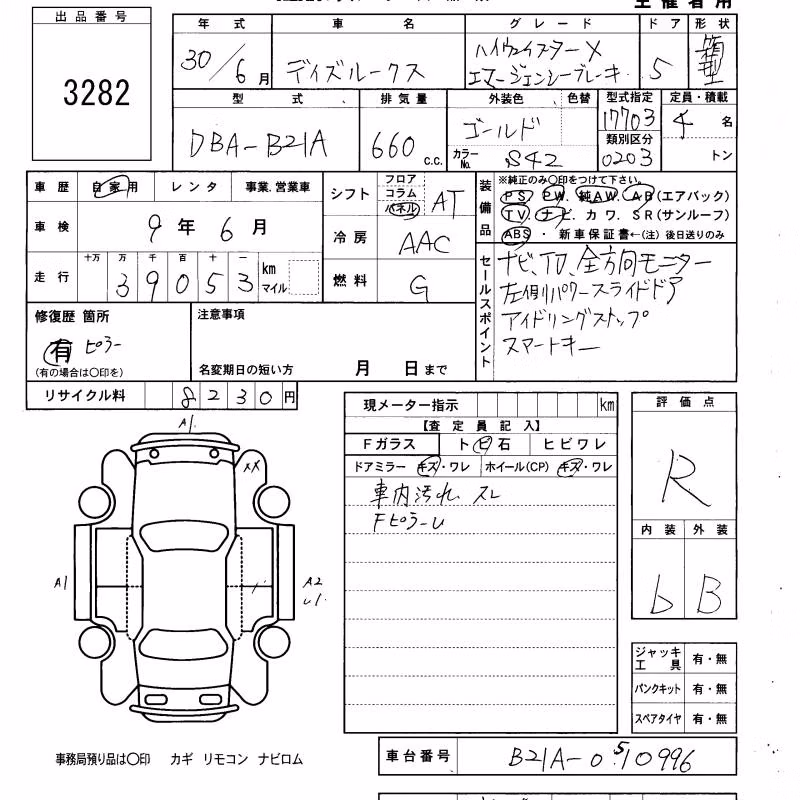 主催者用
出品番号
3282
年式 車名 グレード ドア 形状
30/6月 デイズルークス ハイウェイスターX エマージェンシーブレーキ 5 箱型
型式 排気量 外装色 色替 型式指定 定員・積載
DBA-B21A 660 c.c. ゴールド 17703 4名
カラーNo. S42 類別区分 0203 トン
車歴 自家用 レンタ 事業、営業車
車検 9年6月
走行 十万 万 千 百 十 一
39053 km マイル
シフト フロア コラム パネル AT
冷房 AAC
燃料 G
装備品
※純正のみ〇印をつけて下さい。
PS. PW. 純AW. AB(エアバック)
TV. ナビ. カワ. SR(サンルーフ)
ABS ・ 新車保証書←(注) 後日送りのみ
セールスポイント
ナビ、TV、全方向モニター
左側パワースライドドア
アイドリングストップ
スマートキー
修復歴 箇所
有 ピラー
(有の場合は〇印を)
注意事項
名変期日の短い方 月 日まで
リサイクル料 8230円
現メーター指示 km
【査定員記入】
Fガラス トビ石 ヒビワレ
ドアミラー キズ・ワレ ホイール(CP) キズ・ワレ
車内汚れ、スレ
Fピラーu
評価点
R
内装 外装
b B
A1
XX
A1
A2
u1
ジャッキ工具 有・無
パンクキット 有・無
スペアタイヤ 有・無
事務局預り品は〇印 カギ リモコン ナビロム
車台番号 B21A-0510996